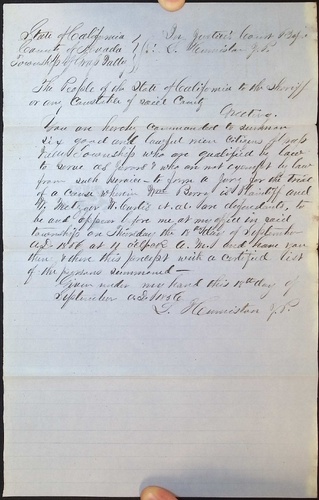 State of California } In Justice's Court Before
County of Nevada } ss. L. Hewniston J.P.
Township of Rough
The People of the State of California to the Sheriff
or any Constable of said County
Greeting.
You are hereby commanded to summon
six good and lawful men citizens of
Township who are qualified by law
to serve as jurors & who are not exempt by law
from such service to form a jury for the trial
of a cause wherein Wm Barr is Plaintiff and
Metzger M. Curtis et. al. are defendants, to
be and appear before me at my office in said
township on Thursday the day of September
A.D. 1856 at o'clock A.M. and have you
then & there this precept with a certified list
of the persons summoned —
Given under my hand this day of
September A.D. 1856.
L. Hewniston J.P.